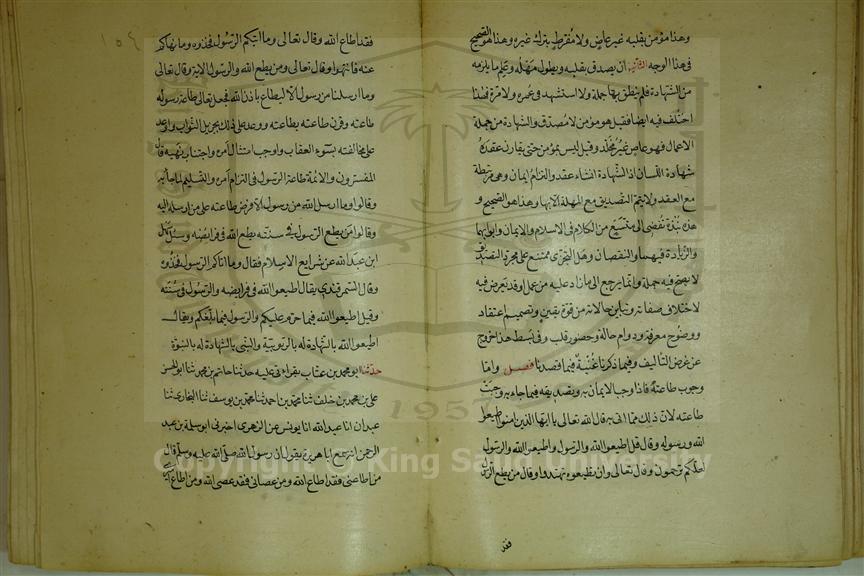 وهذا مؤمن بقلبه غير عاص ولا مفرط بترك غيره وهذا هو الصحيح
في هذا الوجه الثانية ان يصدق بقلبه ويطول مهله وعلم ما يلزمه
من الشهادة فلم ينطق بها جملة ولا استشهد في عمره ولا مرة فهذا
اختلف فيه ايضا فقيل هو مؤمن لانه مصدق والشهادة من جملة
الاعمال فهو عاص غير مخلد وقيل ليس بمؤمن حتى يقارن عقده
شهادة اللسان اذ الشهادة انشاء عقد والتزام ايمان وهي مرتبطة
مع العقد ولا يتم التصديق مع المهلة الا بها وهذا هو الصحيح و
هذه نبذة تفضي الى متسع من الكلام في الاسلام والايمان وابوابهما
والزيادة فيهما والنقصان وهل التجزي ممتنع على مجرد التصديق
لا يصح فيه جملة وانما يرجع الى ما زاد عليه من عمل وقد يعرض فيه
لاختلاف صفاته وتباين حالاته من قوة يقين وتصميم اعتقاد
ووضوح معرفة ودوام حالة وحضور قلب وفي بسط هذا خروج
عن غرض التاليف وفيما ذكرنا غنية فيما قصدنا فصل واما
وجوب طاعته فاذا وجب الايمان به وتصديقه فيما جاء به وجبت
طاعته لان ذلك مما اتى به قال الله تعالى يا ايها الذين امنوا اطيعوا
الله ورسوله وقال قل اطيعوا الله والرسول واطيعوا الله والرسول
لعلكم ترحمون وقال تعالى وان تطيعوه تهتدوا وقال من يطع الرسول
فقد
١٥٤
فقد اطاع الله وقال تعالى وما اتيكم الرسول فخذوه وما نهاكم
عنه فانتهوا وقال تعالى ومن يطع الله والرسول الاية وقال تعالى
وما ارسلنا من رسول الا ليطاع باذن الله فجعل تعالى طاعة رسوله
طاعته وقرن طاعته بطاعته ووعد على ذلك بجزيل الثواب واوعد
على مخالفته بسوء العقاب واوجب امتثال امره واجتناب نهيه قال
المفسرون والائمة طاعة الرسول في التزام امره والتسليم لما جاء به
وقالوا وما ارسل الله من رسول الا فرض طاعته على من ارسله اليه
وقالوا من يطع الرسول في سنته يطع الله في فرائضه وسئل سهل
ابن عبد الله عن شرايع الاسلام فقال وما اتاكم الرسول فخذوه
وقال السمرقندي يقال اطيعوا الله في فرايضه والرسول في سنته
وقيل اطيعوا الله فيما حرم عليكم والرسول فيما بلغكم ويقال
اطيعوا الله بالشهادة له بالربوبية والنبي بالشهادة له بالنبوة
حدثنا ابو محمد بن عتاب بقراءتي عليه حدثنا حاتم بن محمد ثنا ابو الحسن
علي بن محمد بن خلف ثنا محمد بن احمد ثنا محمد بن يوسف ثنا البخاري ثنا
عبدان انا عبد الله انا يونس عن الزهري اخبرني ابو سلمة بن عبد
الرحمن انه سمع ابا هريرة يقول ان رسول الله صلى الله عليه وسلم قال
من اطاعني فقد اطاع الله ومن عصاني فقد عصى الله ومن اطاع
1957
Copyright © King Saud University